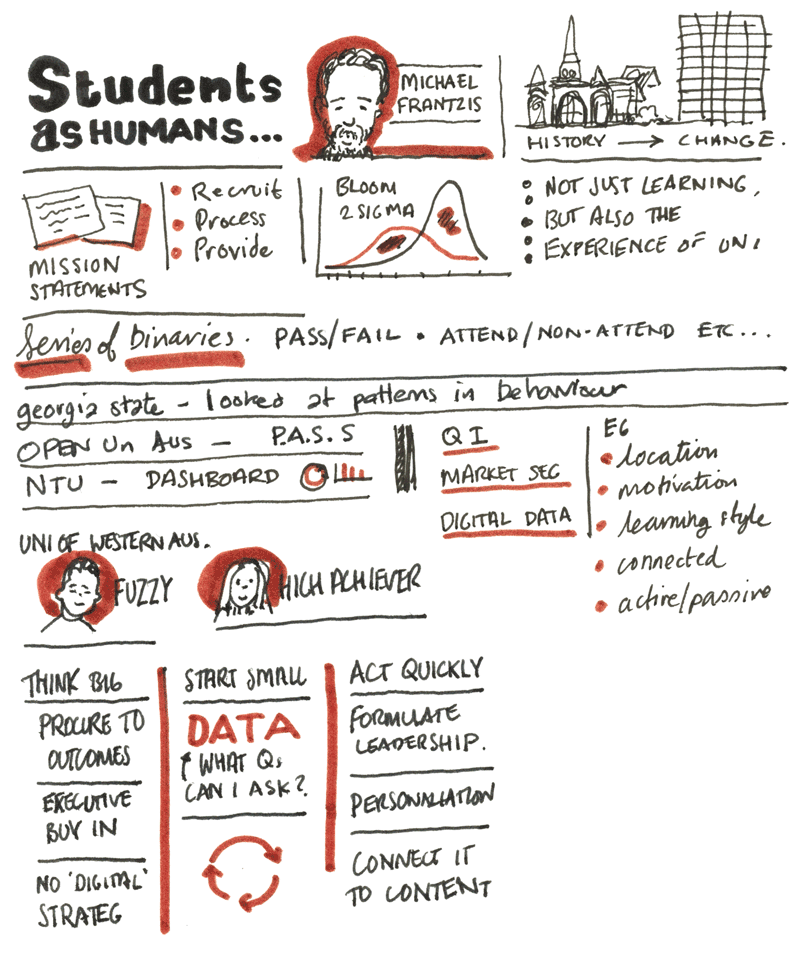 Students
as HUMANS...
MICHAEL
FRANTZIS
HISTORY → CHANGE.
MISSION
STATEMENTS
• Recruit
• Process
• Provide
BLOOM
2 SIGMA
• NOT JUST LEARNING,
BUT ALSO THE
EXPERIENCE OF UNI
Series of binaries. PASS/FAIL • ATTEND/NON-ATTEND ETC...
georgia state - looked at patterns in behaviour
OPEN Un AUS - P.A.S.S
NTU - DASHBOARD
QI
MARKET SEG
DIGITAL DATA
EG
• location
• motivation
• learning style
• connected
• active/passive
UNI OF WESTERN AUS.
FUZZY
HIGH ACHIEVER
THINK BIG
PROCURE TO
OUTCOMES
EXECUTIVE
BUY IN
NO 'DIGITAL'
STRATEG
START SMALL
DATA
↑ WHAT Qs
CAN I ASK?
ACT QUICKLY
FORMULATE
LEADERSHIP.
PERSONALIATION
CONNECT IT
TO CONTENT